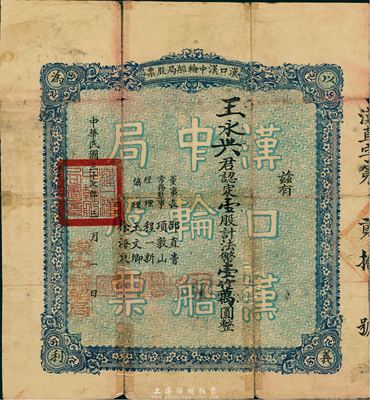 漢口漢中輪船局股票
以
為
義
利
漢口漢
中輪船
局股票
茲有
王永興君認定壹股計法幣壹百萬圓整
董事長 邵直書
常務董事 項敦山
經理 程一新
協理 王文卿
徐海泉
中華民國三十七年三月一日
號
上海陽明拍賣